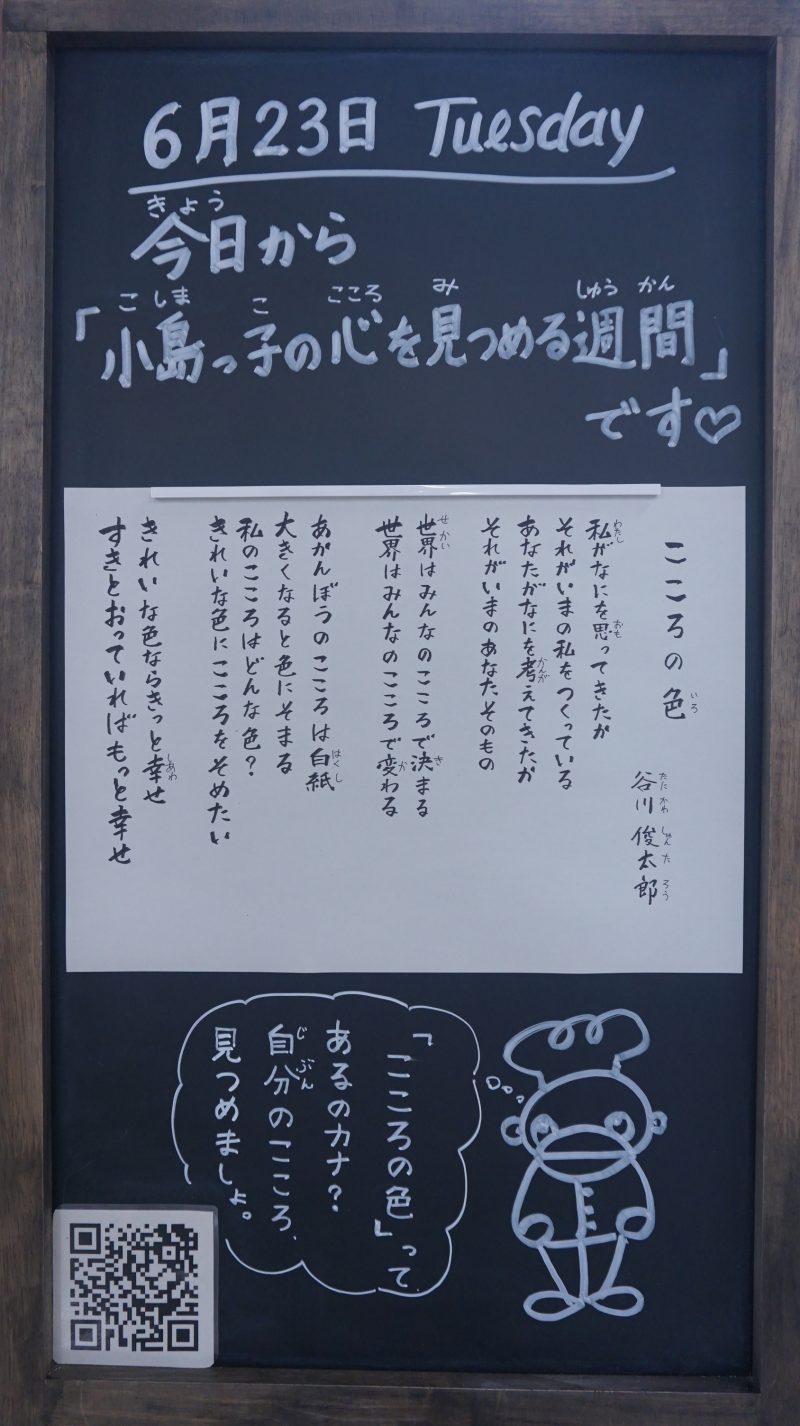 6月23日 Tuesday
きょう
今日から
こ しま こ こころ み しゅう かん
「小島っ子の心を見つめる週間」
です♡
こころの色
いろ
谷川 俊太郎
たに かわ しゅん た ろう
私がなにを思ってきたか
わたし おも
それがいまの私をつくっている
あなたがなにを考えてきたか
かんが
それがいまのあなたそのもの
世界はみんなのこころで決まる
せ かい き
世界はみんなのこころで変わる
か
あかんぼうのこころは白紙
はくし
大きくなると色にそまる
私のこころはどんな色？
きれいな色にこころをそめたい
きれいな色ならきっと幸せ
しあわ
すきとおっていればもっと幸せ
「こころの色」って
あるのカナ？
自分のこころ、
じ ぶん
見つめましょ。